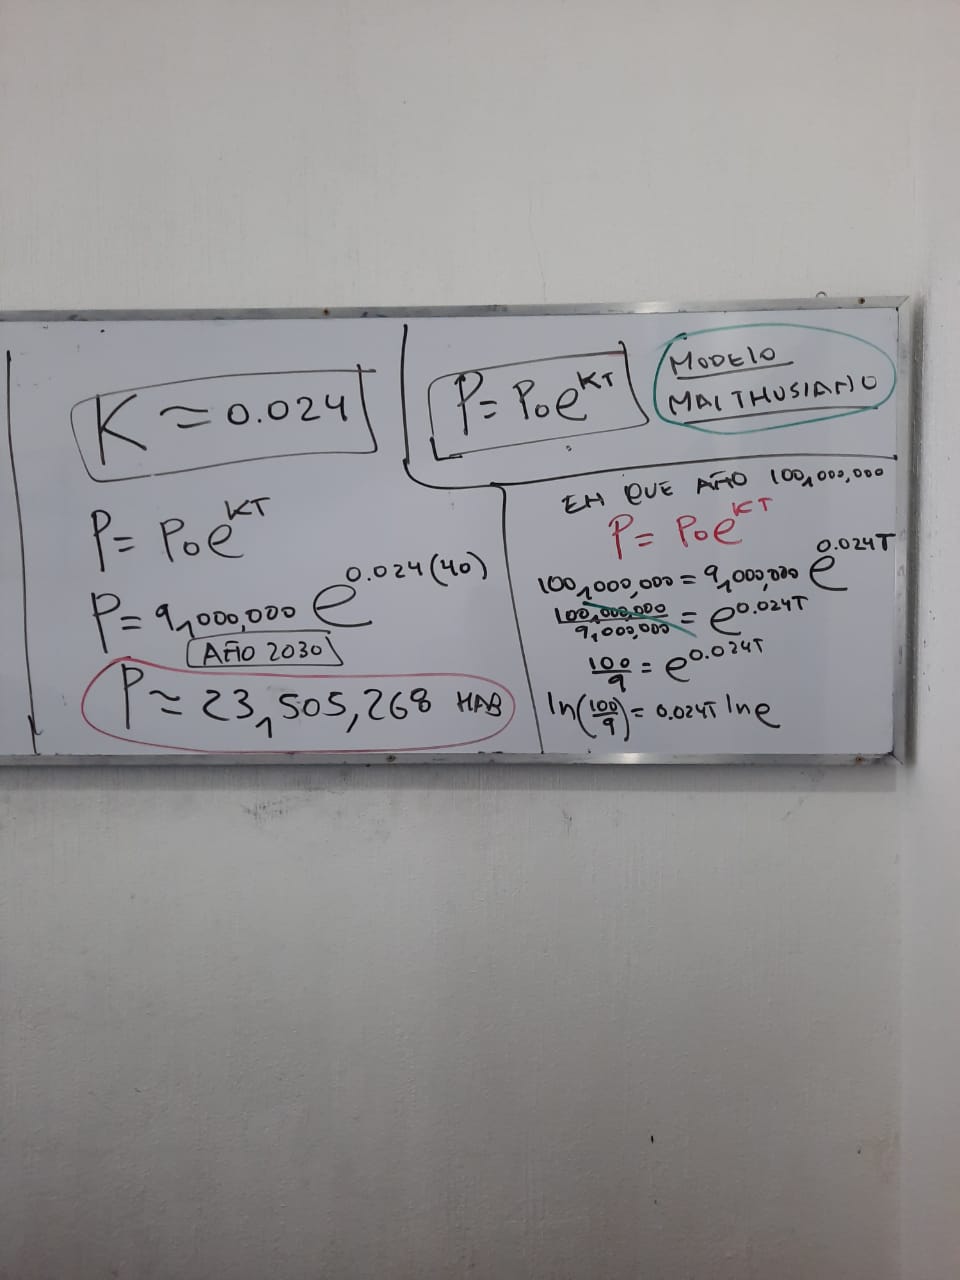 K ≈ 0.024
P = P₀e^KT
P = 9,000,000 e^0.024(40)
AÑO 2030
P ≈ 23,505,268 HAB
P = P₀e^KT
MODELO
MALTHUSIANO
EN QUE AÑO 100,000,000
P = P₀e^KT
100,000,000 = 9,000,000 e^0.024T
100,000,000/9,000,000 = e^0.024T
100/9 = e^0.024T
ln(100/9) = 0.024T lne